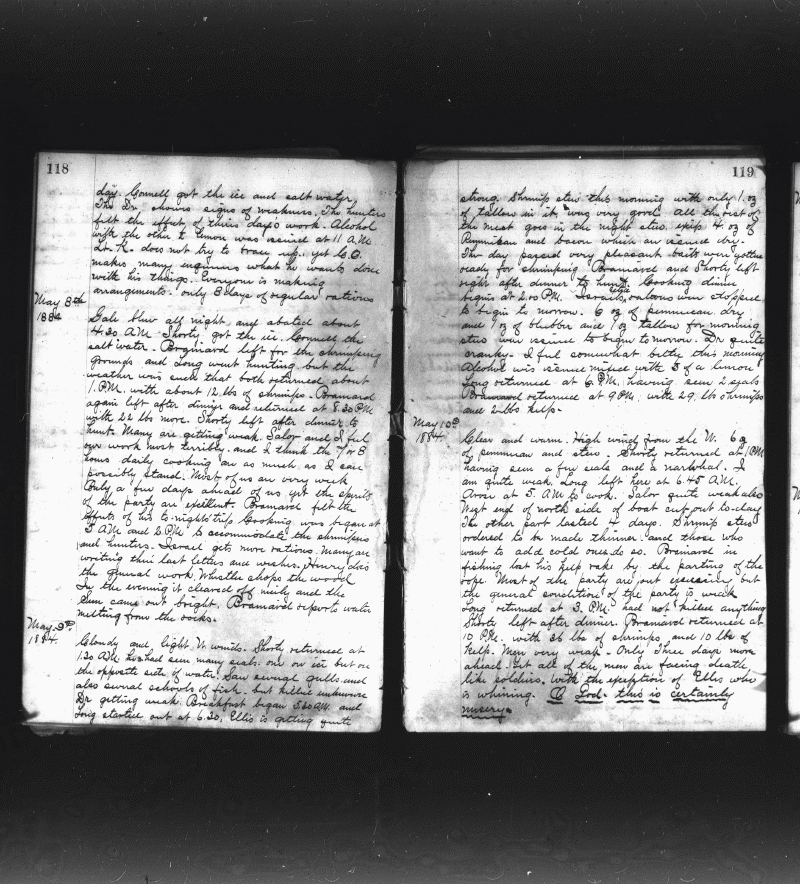 118
day. Connell got the ice and salt water.
The Dr. shows signs of weakness. The hunters
felt the effect of their day's work. Alcohol
with the other ½ lemon was issued at 11 A.M.
Lt. K. does not try to brace up. yet C.O.
makes many inquiries what he wants done
with his things. Everyone is making
arrangements. only 8 days of regular rations
May 8th
1884
Gale blew all night and abated about
4.30 A.M. Shorty got the ice. Connell the
salt water. Brainard left for the shrimping
grounds and Long went hunting but the
weather was such that both returned about
1. P.M. with about 12 lbs of shrimps. Brainard
again left after dinner and returned at 8.30 P.M.
with 22 lbs more. Shorty left after dinner to
hunt. Many are getting weak. Salor and I feel
our work most terribly. and I think the 7 or 8
hours daily cooking as much as I can
possibly stand. Most of us are very weak
Only a few days ahead of us yet the spirits
of the party are excellent. Brainard felt the
effects of his to-nights trip. Cooking was began at
5 A.M. and 2 P.M. to accommodate the shrimpers
and hunters. Israel gets more rations. Many are
writing their last letters and wishes. Henry does
the general work. Whistler chops the wood
In the evening it cleared off nicely and the
Sun came out bright. Brainard reports water
melting from the rocks.
May 9th
1884.
Cloudy and light W. winds. Shorty returned at
1.30 A.M. he had seen many seals. one on ice but on
the opposite side of water. Saw several gulls and
also several schools of fish. but killed
Dr getting weak. Breakfast began 5.30 A.M. and
Long started out at 6.30. Ellis is getting quite
119
strong. Shrimp stew this morning with only 1. oz
of tallow in it. was very good. All the rest of
the meat goes in the night stew. except 4. oz of
Pemmican and bacon which are issued dry.
The day passed very pleasant baits were gotten
ready for shrimping. Brainard and Shorty left
right after dinner to hunt. Cooking dinner
begins at 2.00 P.M. Israels extra rations were stopped
to begin to morrow. 6 oz of pemmican dry
and 1 oz of blubber and 1 oz tallow for morning
stew were issued to begin to morrow. Dr quite
cranky. I feel somewhat better this morning
Alcohol was issued mixed with 3 of a lemon
Long returned at 6. P.M. having seen 2 seals
Brainard returned at 9 P.M. with 29. lbs shrimps
and 2 lbs kelp.
May 10th
1884.
Clear and warm. High wind from the W. 6 oz
of pemmican and stew. Shorty returned at 1 P.M.
having seen a few seals and a narwhal. I
am quite weak. Long left here at 6.45 A.M.
Arose at 5. A.M to cook. Salor quite weak also
West end of north side of boat cut out to-day
The other part lasted 4 days. Shrimp stew
ordered to be made thinner. and those who
want to add cold ones do so. Brainard in
fishing lost his kelp rake by the parting of the
rope. Most of the party are out but
the general condition of the party is weak
Long returned at 3. P.M. had not killed anything
Shorty left after dinner. Brainard returned at
10 P.M. with 35 lbs of shrimps and 10 lbs of
kelp. Men very weak. Only Three days more
ahead. yet all of the men are facing death
like soldiers. with the exception of Ellis who
is whining. O God. this is certainly
misery.